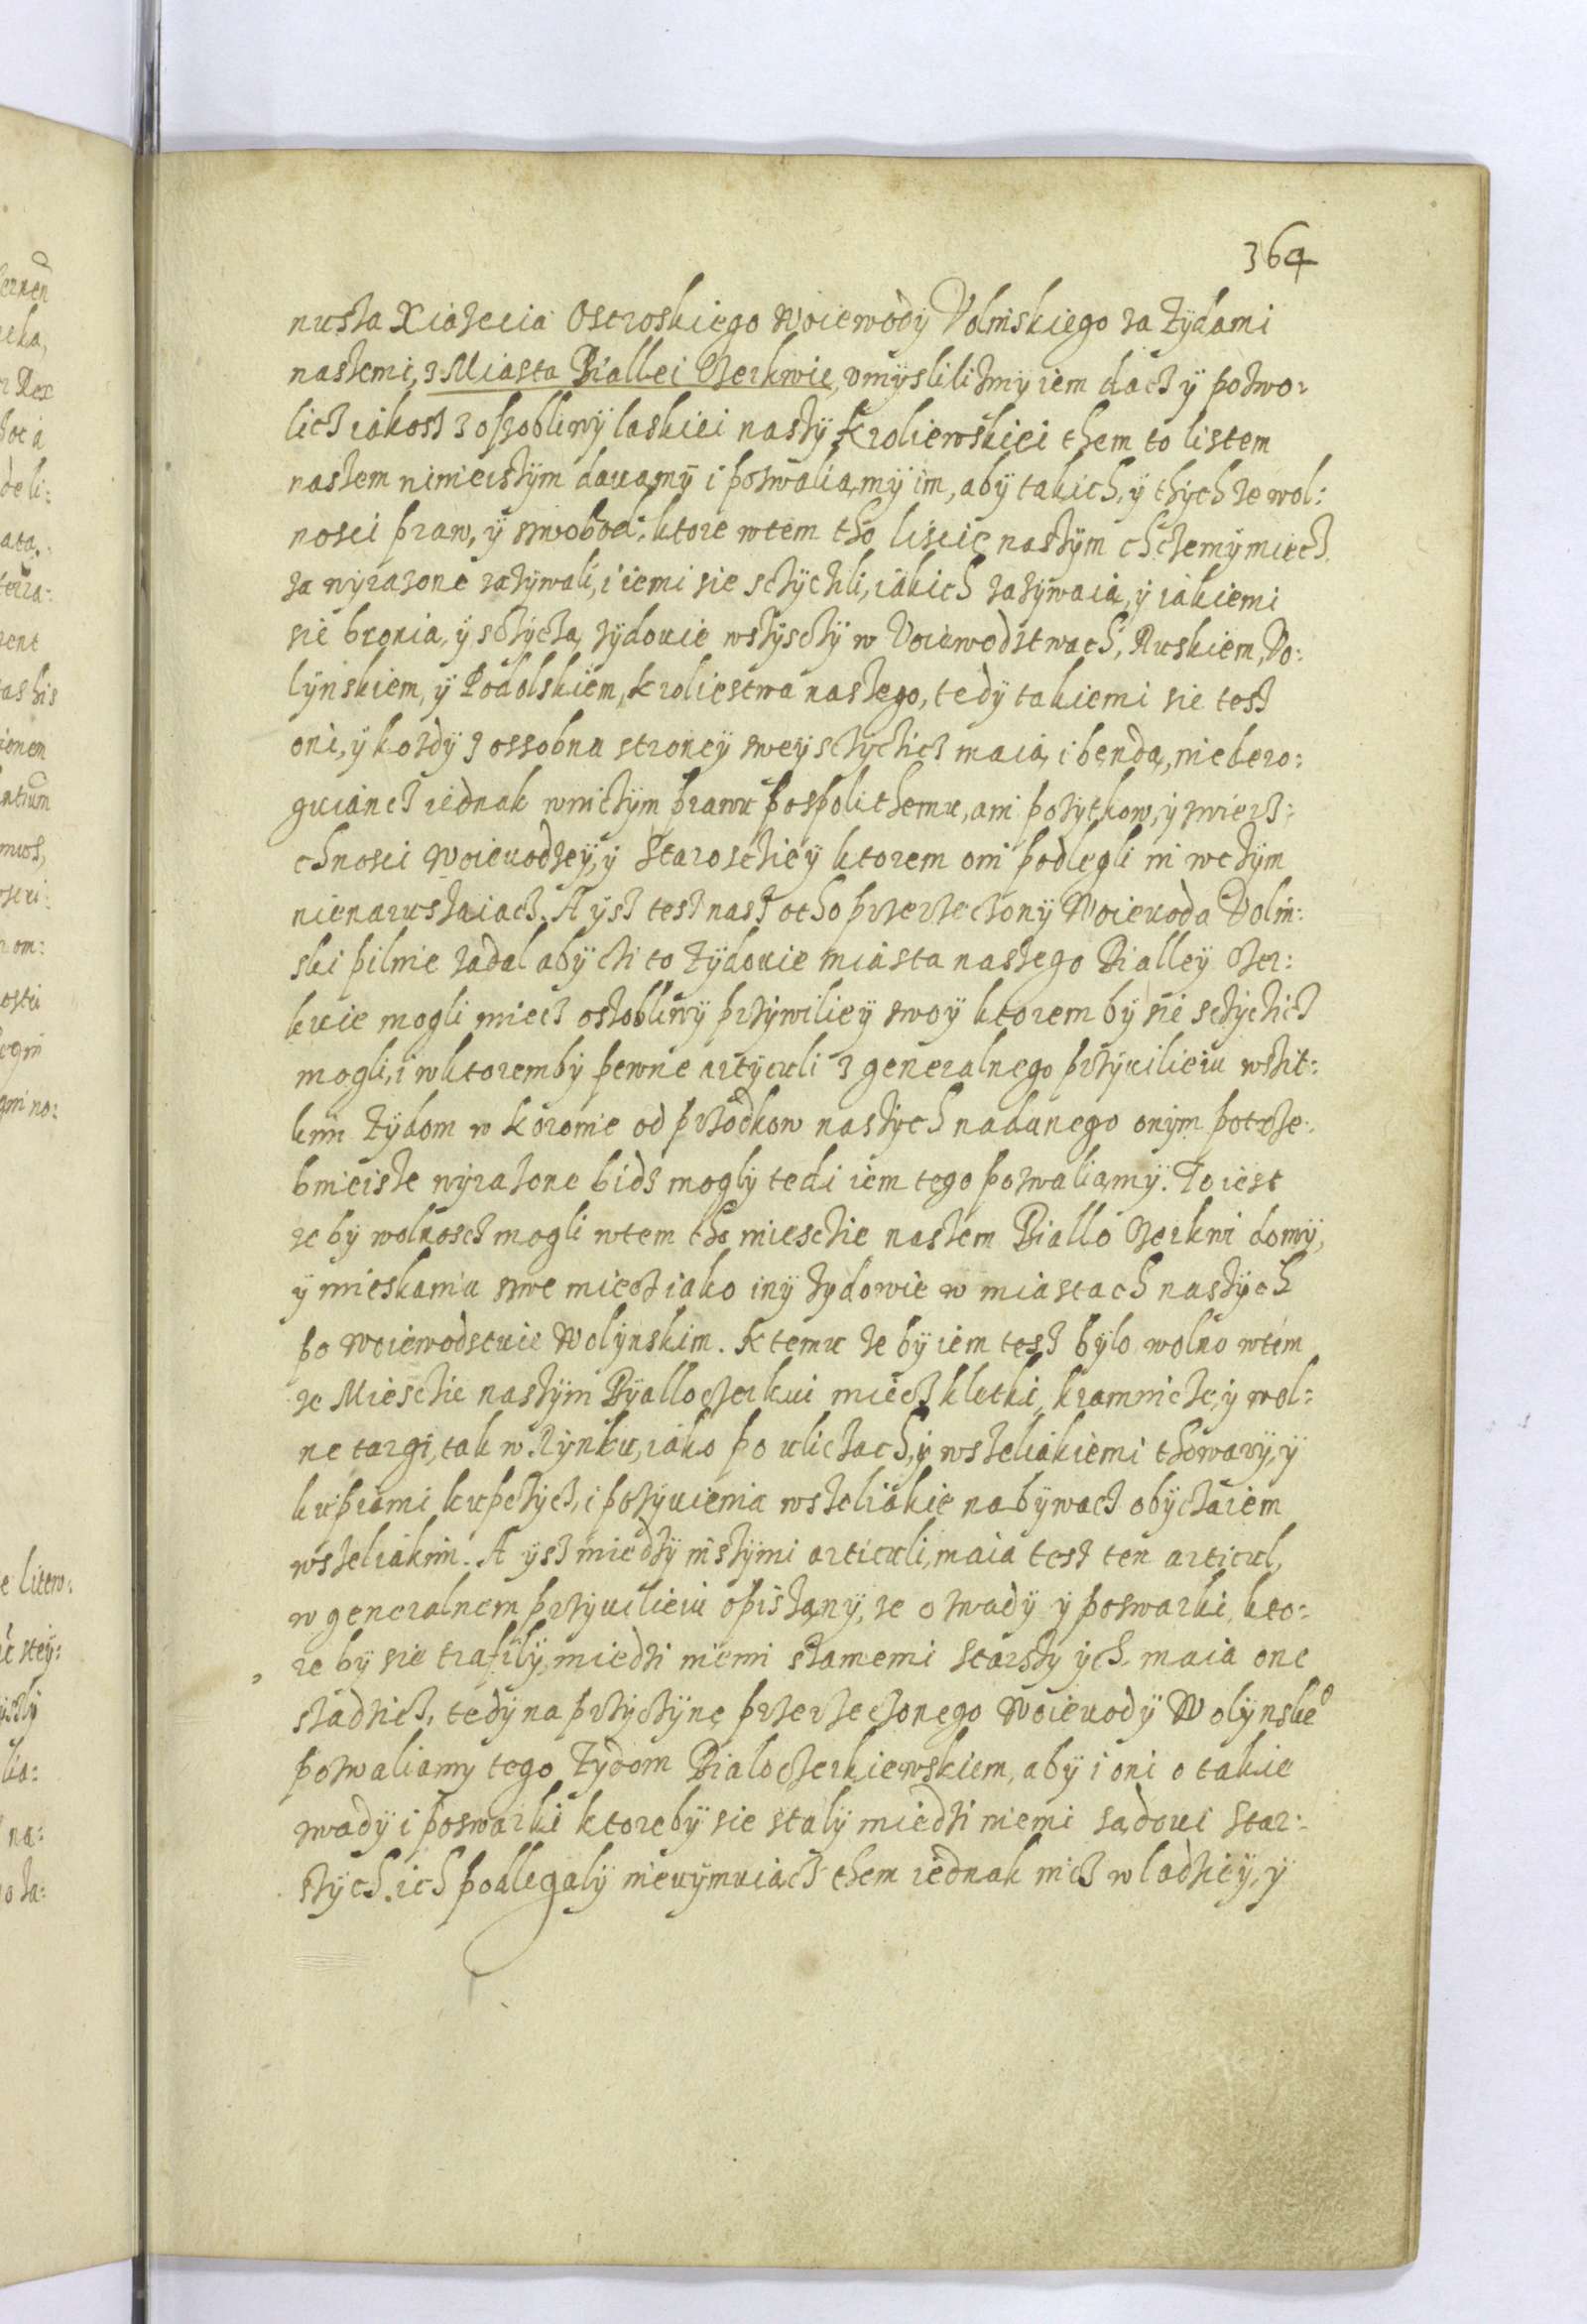 364
nusza Xiazecia Ostroskiego Woiewody Volinskiego za Zydami
naszemi, z Miasta Biallei Czerkwie, vmÿslilizmÿ iem dacz ÿ pozwo:
licz iakosz z oszobliwÿ laskiei naszÿ Kroliewskiei them to listem
naszem ninieiszÿm dauamÿ i pozwaliamÿ im, abÿ takich, ÿ thÿch ze wol:
nosci praw, ÿ swobod, ktore wtem tho liscie naszÿm chczemÿ miecz
za wÿrazone zazÿwali, i iemi sie sczÿczili, iakich zazÿwaia, ÿ iakiemi
sie bronia, ÿ sczÿcza zÿdouie wszÿsczÿ w Voiewodztwach, Ruskiem, Vo:
lÿnskiem, ÿ Podolskiem, kroliestwa naszego, tedÿ takiemi sie tesz
oni, ÿ kozdÿ z ossobna stroneÿ sweÿ sczÿczicz maia, i benda, niedero:
guiancz iednak wniczÿm prawu pospolithemu, ani pozÿtkow, ÿ zwierz:
chnosci Woieuodzeÿ, ÿ Starosczieÿ ktorem oni podlegli ni wczÿm
nienaruszaiacz. A ÿsz tesz nasz otho przerzeczonÿ Woieuoda Volin:
ski pilnie zadal abÿ czi to Zÿdouie miasta naszego Bialleÿ Czer:
kuie mogli miecz oszobliwÿ przÿwilieÿ swoÿ ktorem bÿ sie sczÿczicz
mogli, i wktorembÿ pewne artÿculi z generalnego przÿuilieiu wszit:
kim Zÿdom w Koronie od przodkow naszÿch nadanego onÿm potrze:
bnieisze wÿrazone bidz moglÿ tedi iem tego pozwaliamÿ. To iest
ze bÿ wolnoscz mogli wtem tho miesczie naszem Biallo Czerkwi domÿ,
ÿ mieskania swe miecz iako inÿ zydowie w miastach naszÿch
po Woiewodstuie Wolÿnskim. K temu ze bÿ iem tesz bÿlo wolno wtem
ze Miesczie naszÿm Bÿalloczerkui miecz kletki, kramnicze, ÿ wol:
ne targi, tak w Rÿnku, iako po uliczach, ÿ wszeliakiemi thowarÿ, ÿ
kupiami kupczÿcz, i pozÿuienia wszeliakie nabÿwacz obÿczaiem
wszeliakim. A ÿsz miedzÿ inszÿmi articuli, maia tesz ten articul,
w generalnem przÿuilieiu opiszanÿ, ze o zwadÿ ÿ poswarki, kto:
re bÿ sie trafilÿ, miedzi niemi szamemi starszÿ ÿch maia one
szadzicz, tedÿ na przÿczÿne przerzeczonego Woieuodÿ Wolÿnske°
pozwaliamy tego Zydom Bialoczerkiewskiem, abÿ i oni o takie
zwadÿ i poswarki ktorebÿ sie stalÿ miedzi niemi sadoui star:
szÿch ich podlegalÿ nieuÿmuiacz them iednak nicz wladzieÿ, ÿ